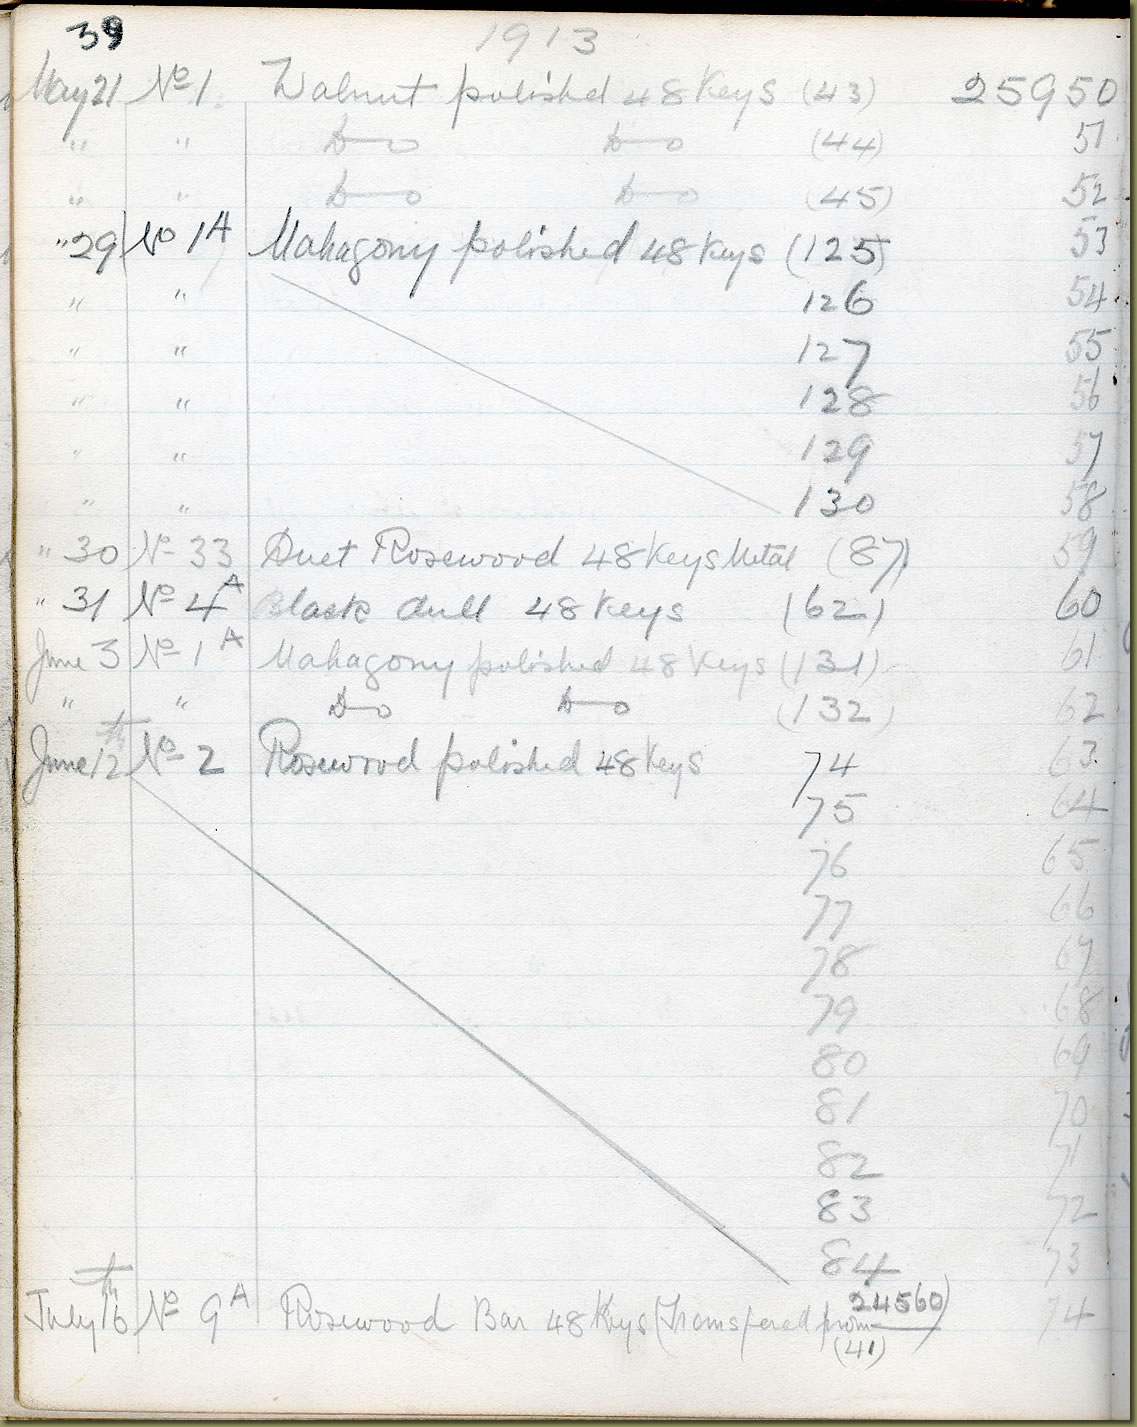 39 1913
May 21 No 1 Walnut polished 48 Keys (43) 25950
" " Do Do (44) 51
" " Do Do (45) 52
" 29 No 1A Mahagony polished 48 Keys (125) 53
" " 126 54
" " 127 55
" " 128 56
" " 129 57
" " 130 58
" 30 No 33 Duet Rosewood 48 Keys Metal (87) 59
" 31 No 4A Black dull 48 Keys (62) 60
June 3 No 1A Mahagony polished 48 Keys (131) 61
" " Do Do (132) 62
June 12th No 2 Rosewood polished 48 Keys 74 63
75 64
76 65
77 66
78 67
79 68
80 69
81 70
82 71
83 72
84 73
July 16th No 9A Rosewood Bar 48 Keys (Transfered from 24560) 74
(41)